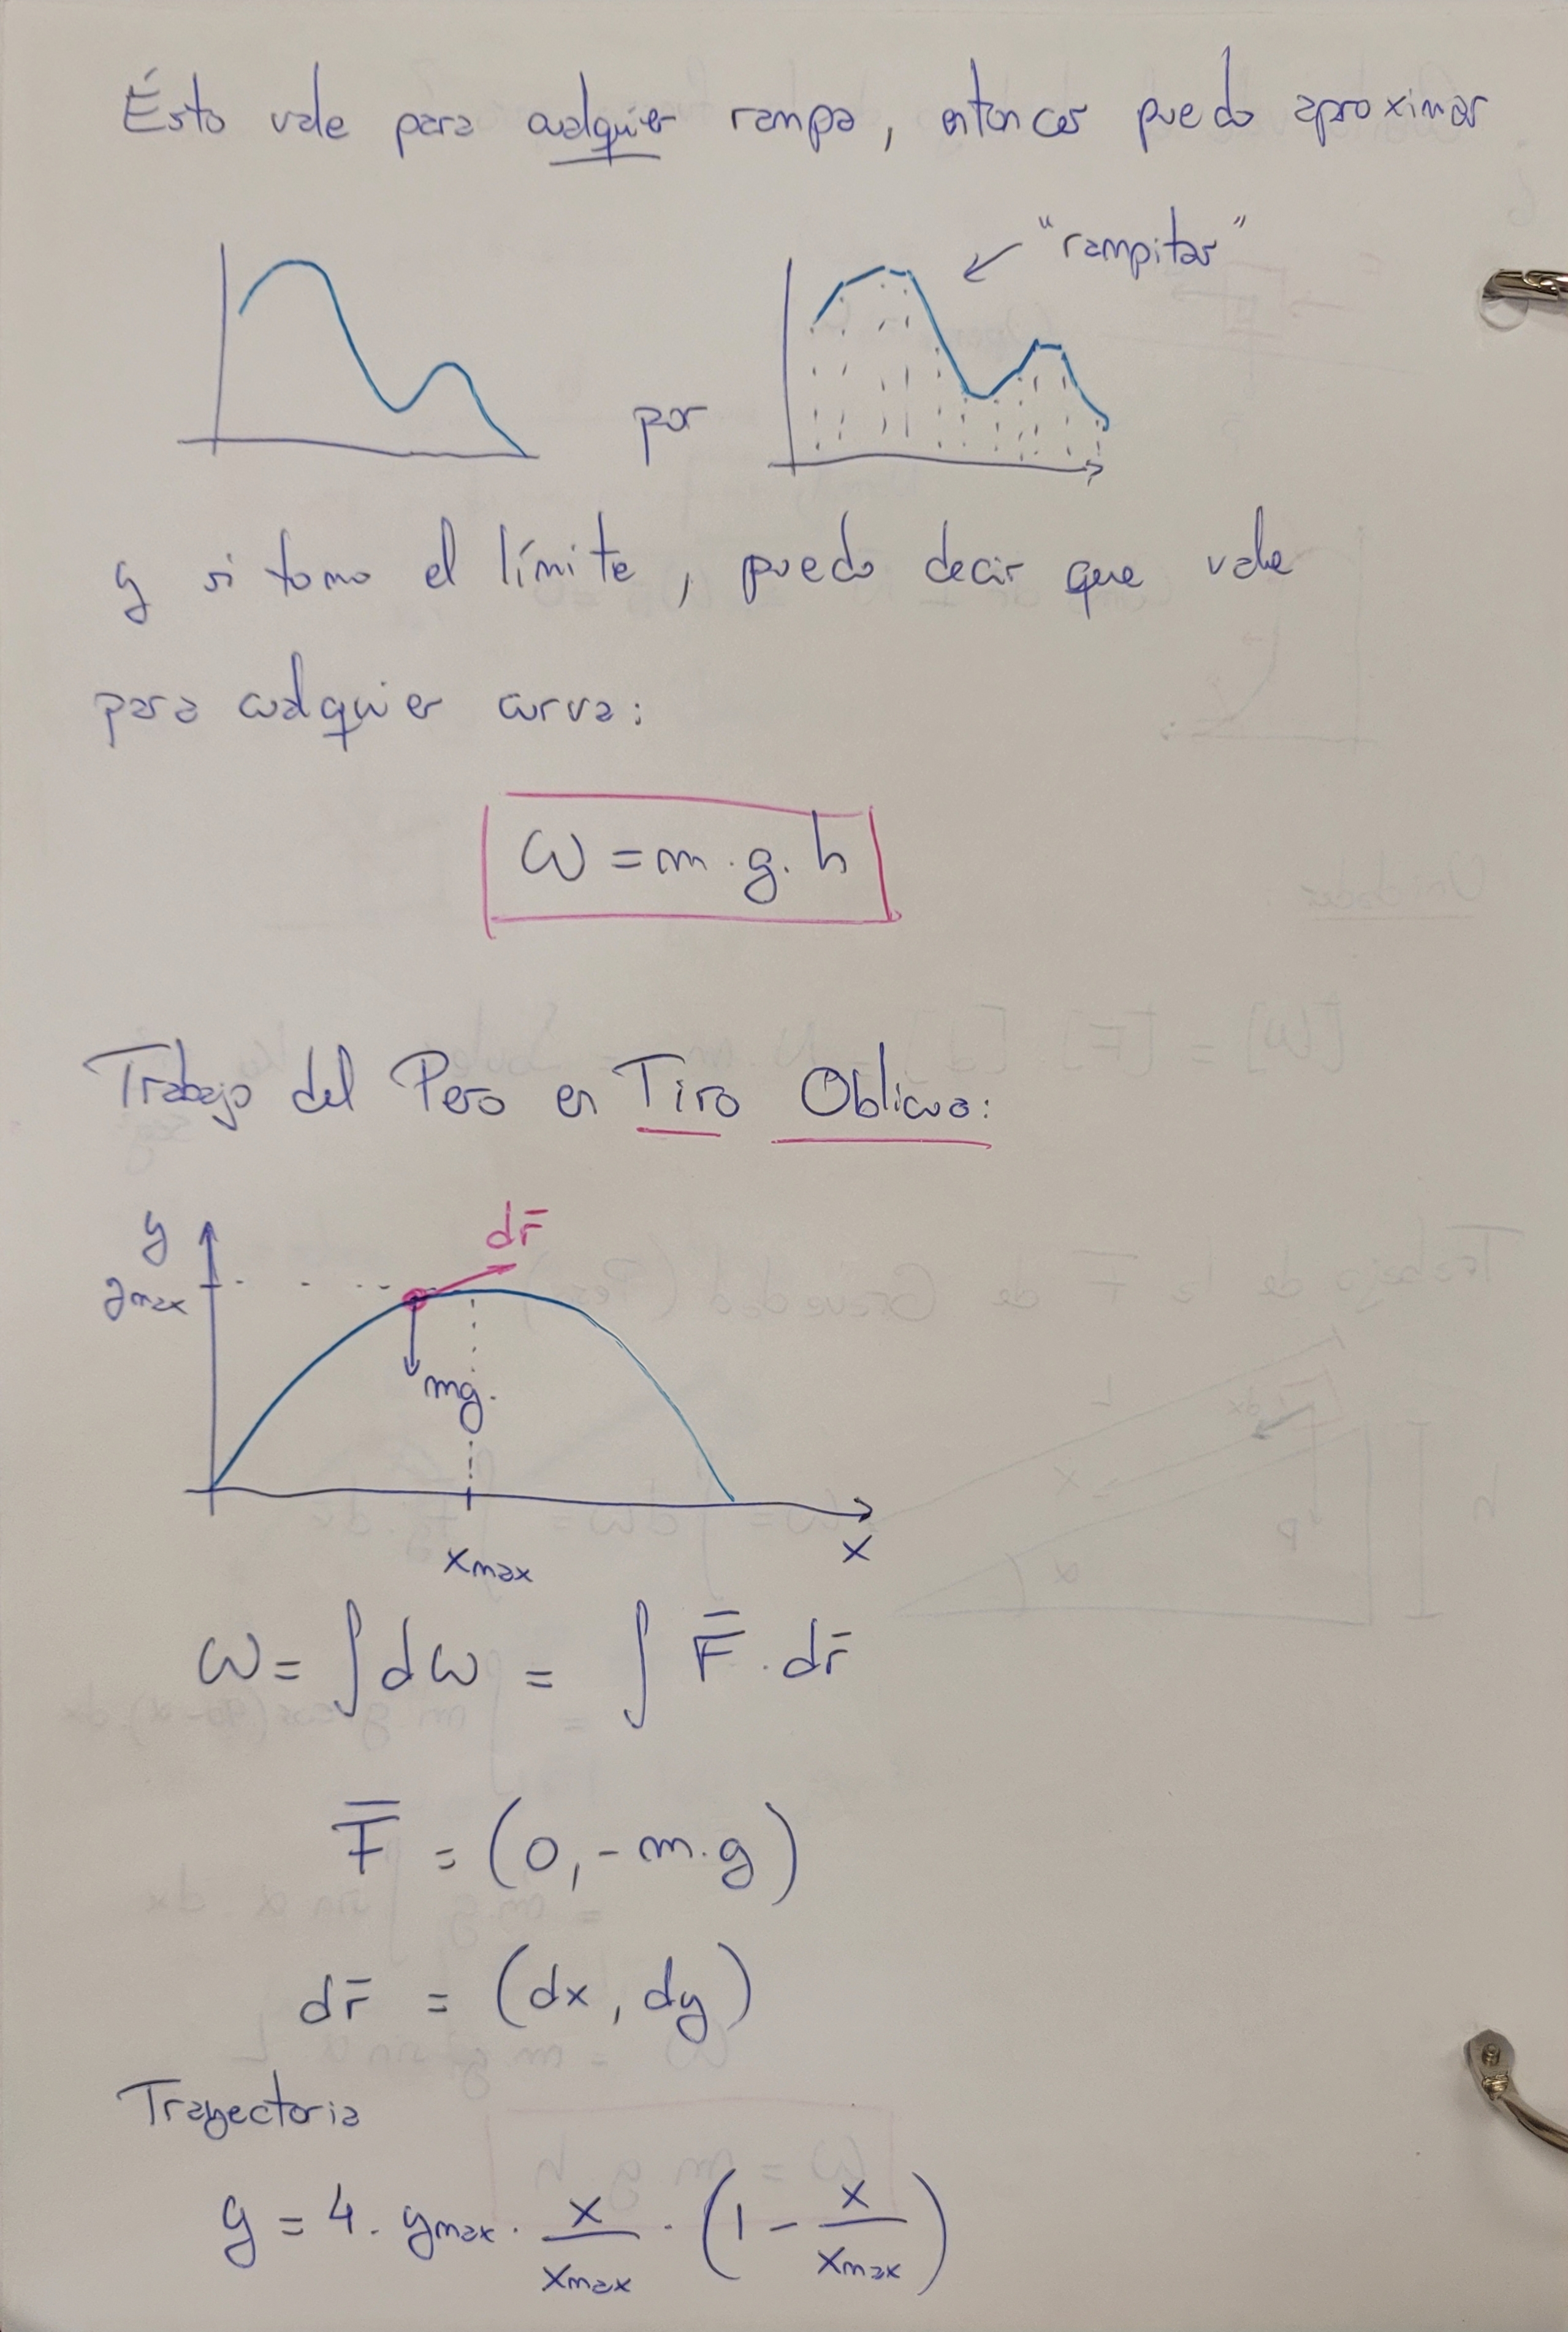 Ésto vale para cualquier rampa, entonces puedo aproximar
"rampitas"
por
y si tomo el límite, puedo decir que vale
para cualquier curva:
W = m . g . h
Trabajo del Peso en Tiro Oblicuo:
y
dr̄
ymax
mg.
xmax
x
W = ∫ dW = ∫ F̄ . dr̄
F̄ = (0, - m.g)
dr̄ = (dx, dy)
Trayectoria
y = 4 . ymax . x/xmax . (1 - x/xmax)